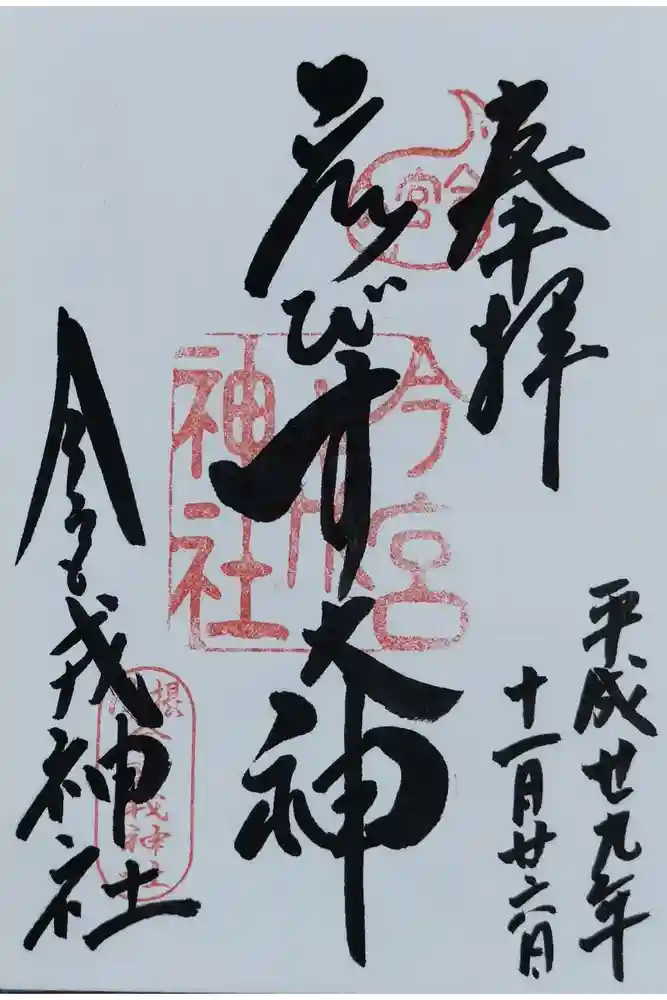 奉拝
ゑびす大神
今宮戎神社
平成廿九年
十一月廿六日
今宮戎神社
今宮